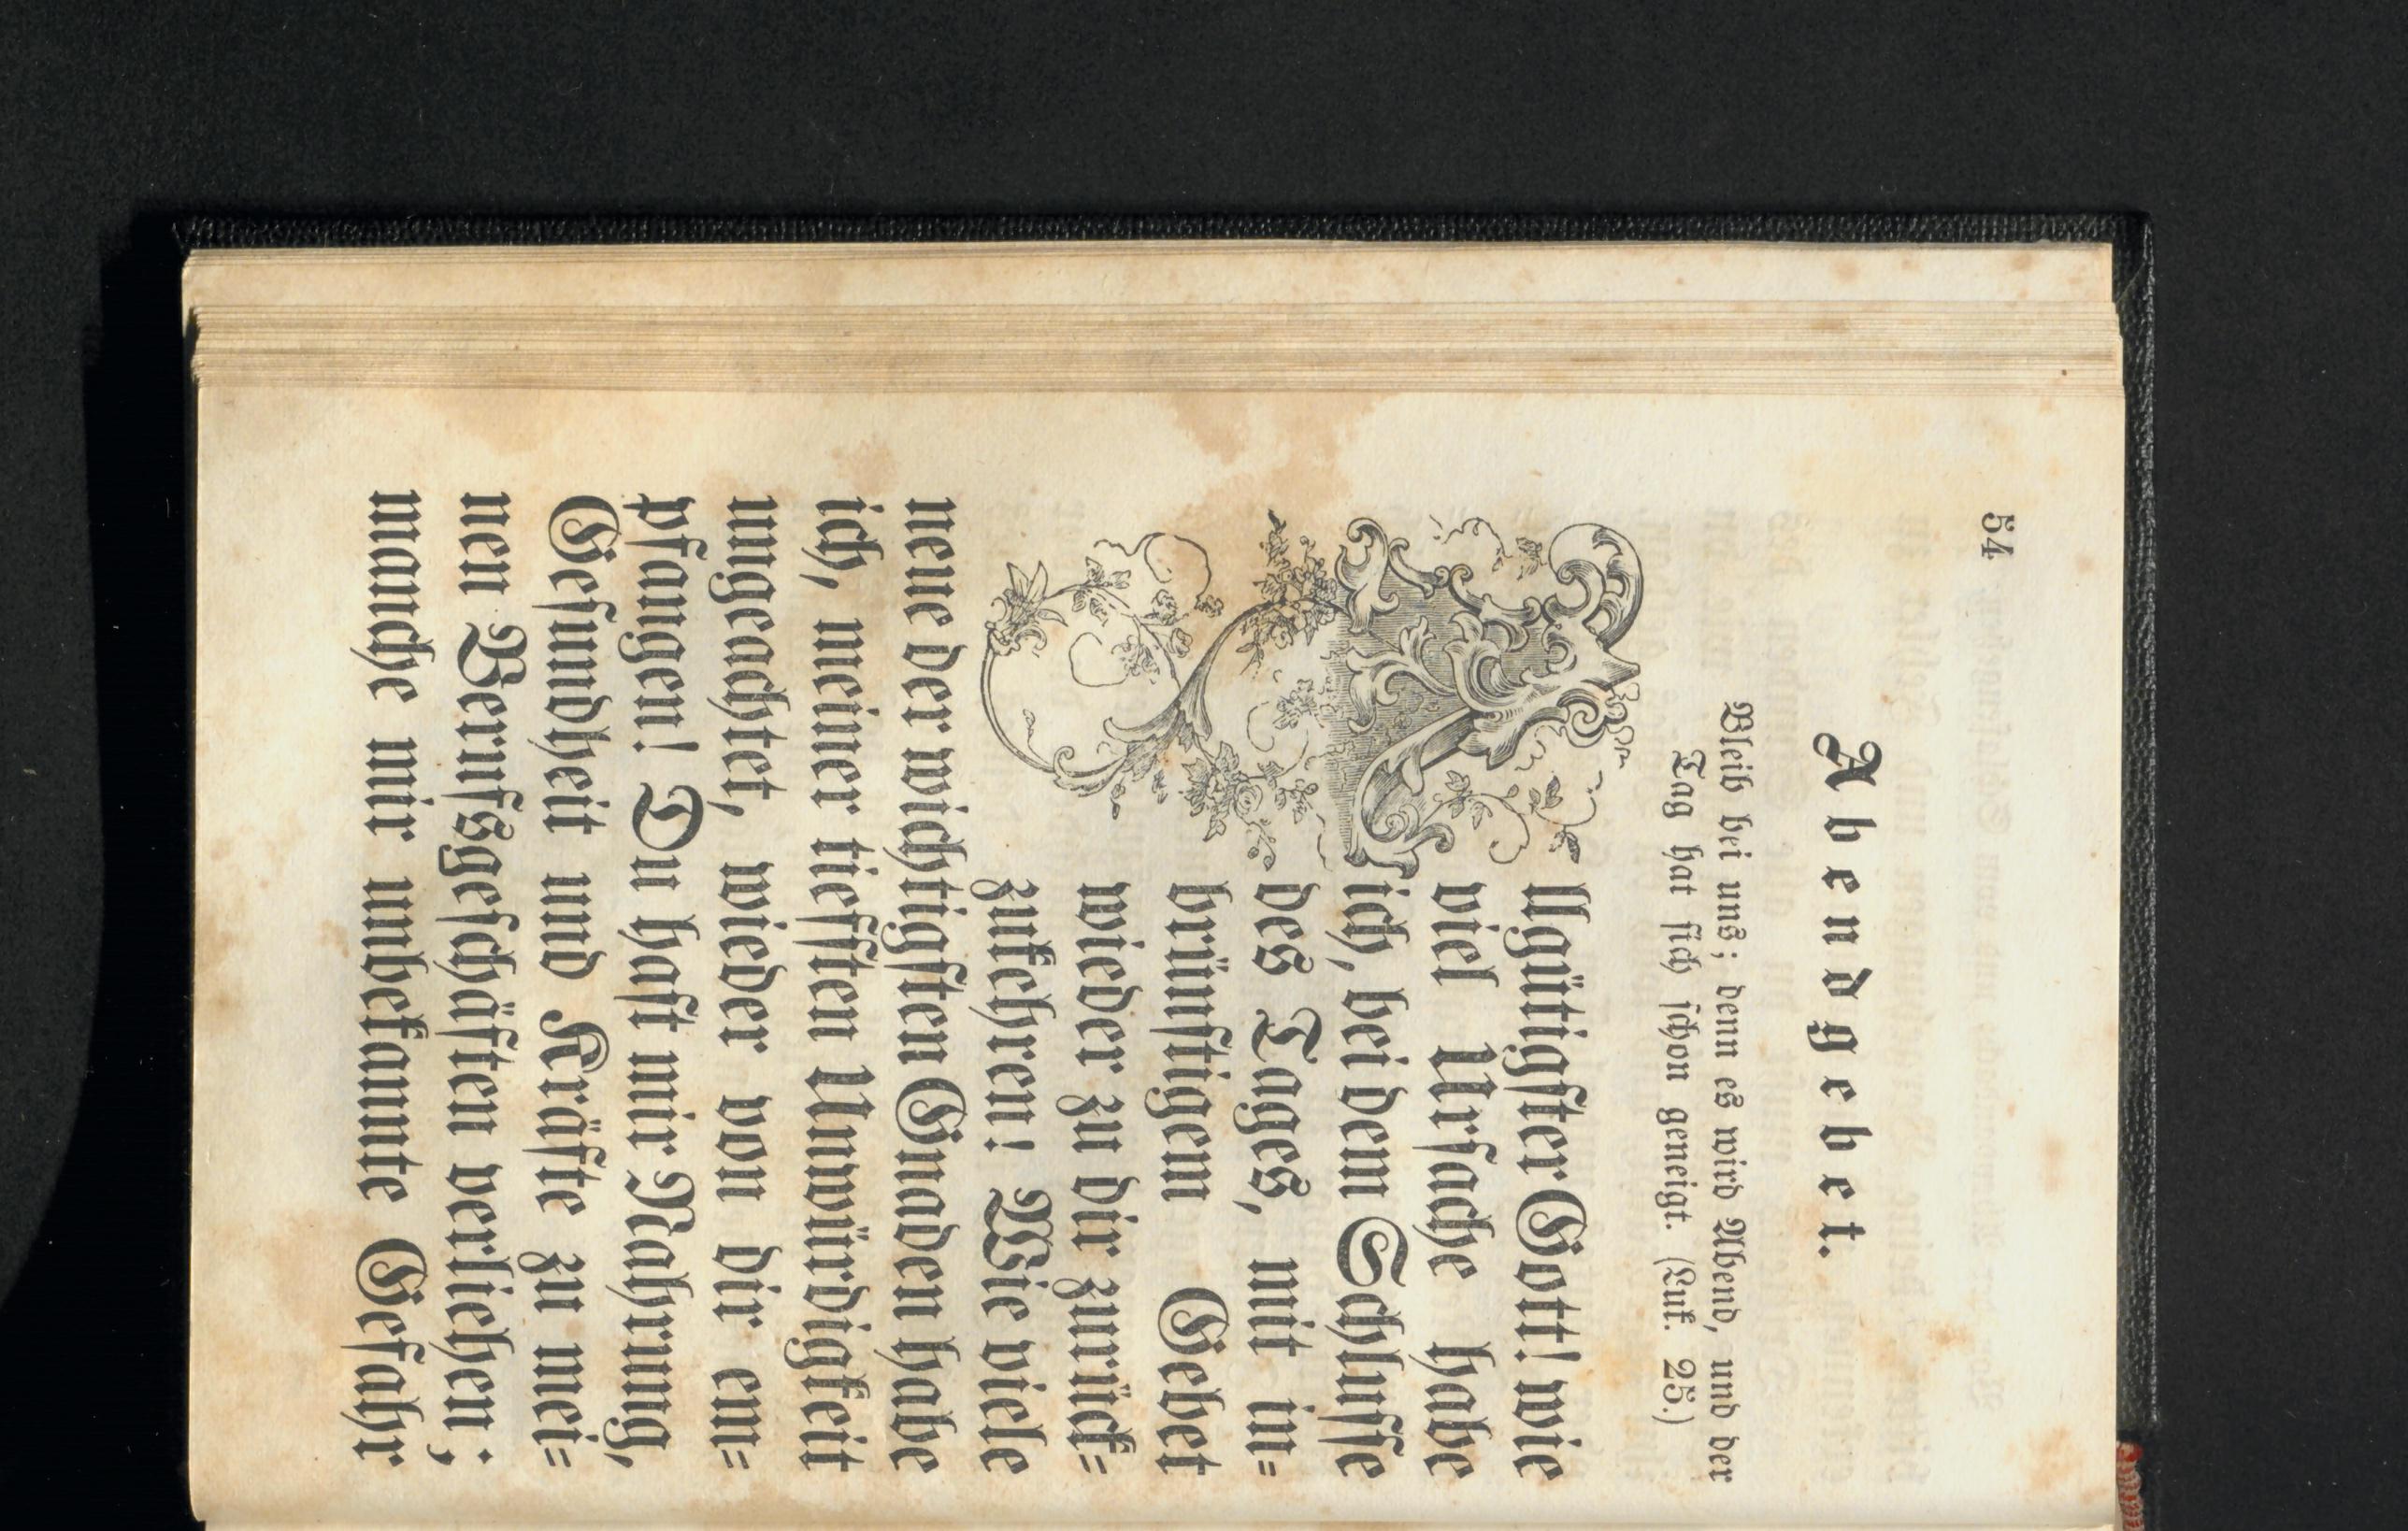 54
Abendgebet.
Bleib bei uns; denn es wird Abend, und der
Tag hat sich schon geneigt. (Luk. 25.)
Allgütigster Gott! wie
viel Ursache habe
ich, bei dem Schlusse
des Tages, mit in=
brünstigem Gebet
wieder zu dir zurück=
zukehren! Wie viele
neue der wichtigsten Gnaden habe
ich, meiner tiefsten Unwürdigkeit
ungeachtet, wieder von dir em=
pfangen! Du hast mir Nahrung,
Gesundheit und Kräfte zu mei=
nen Berufsgeschäften verliehen;
manche mir unbekannte Gefahr